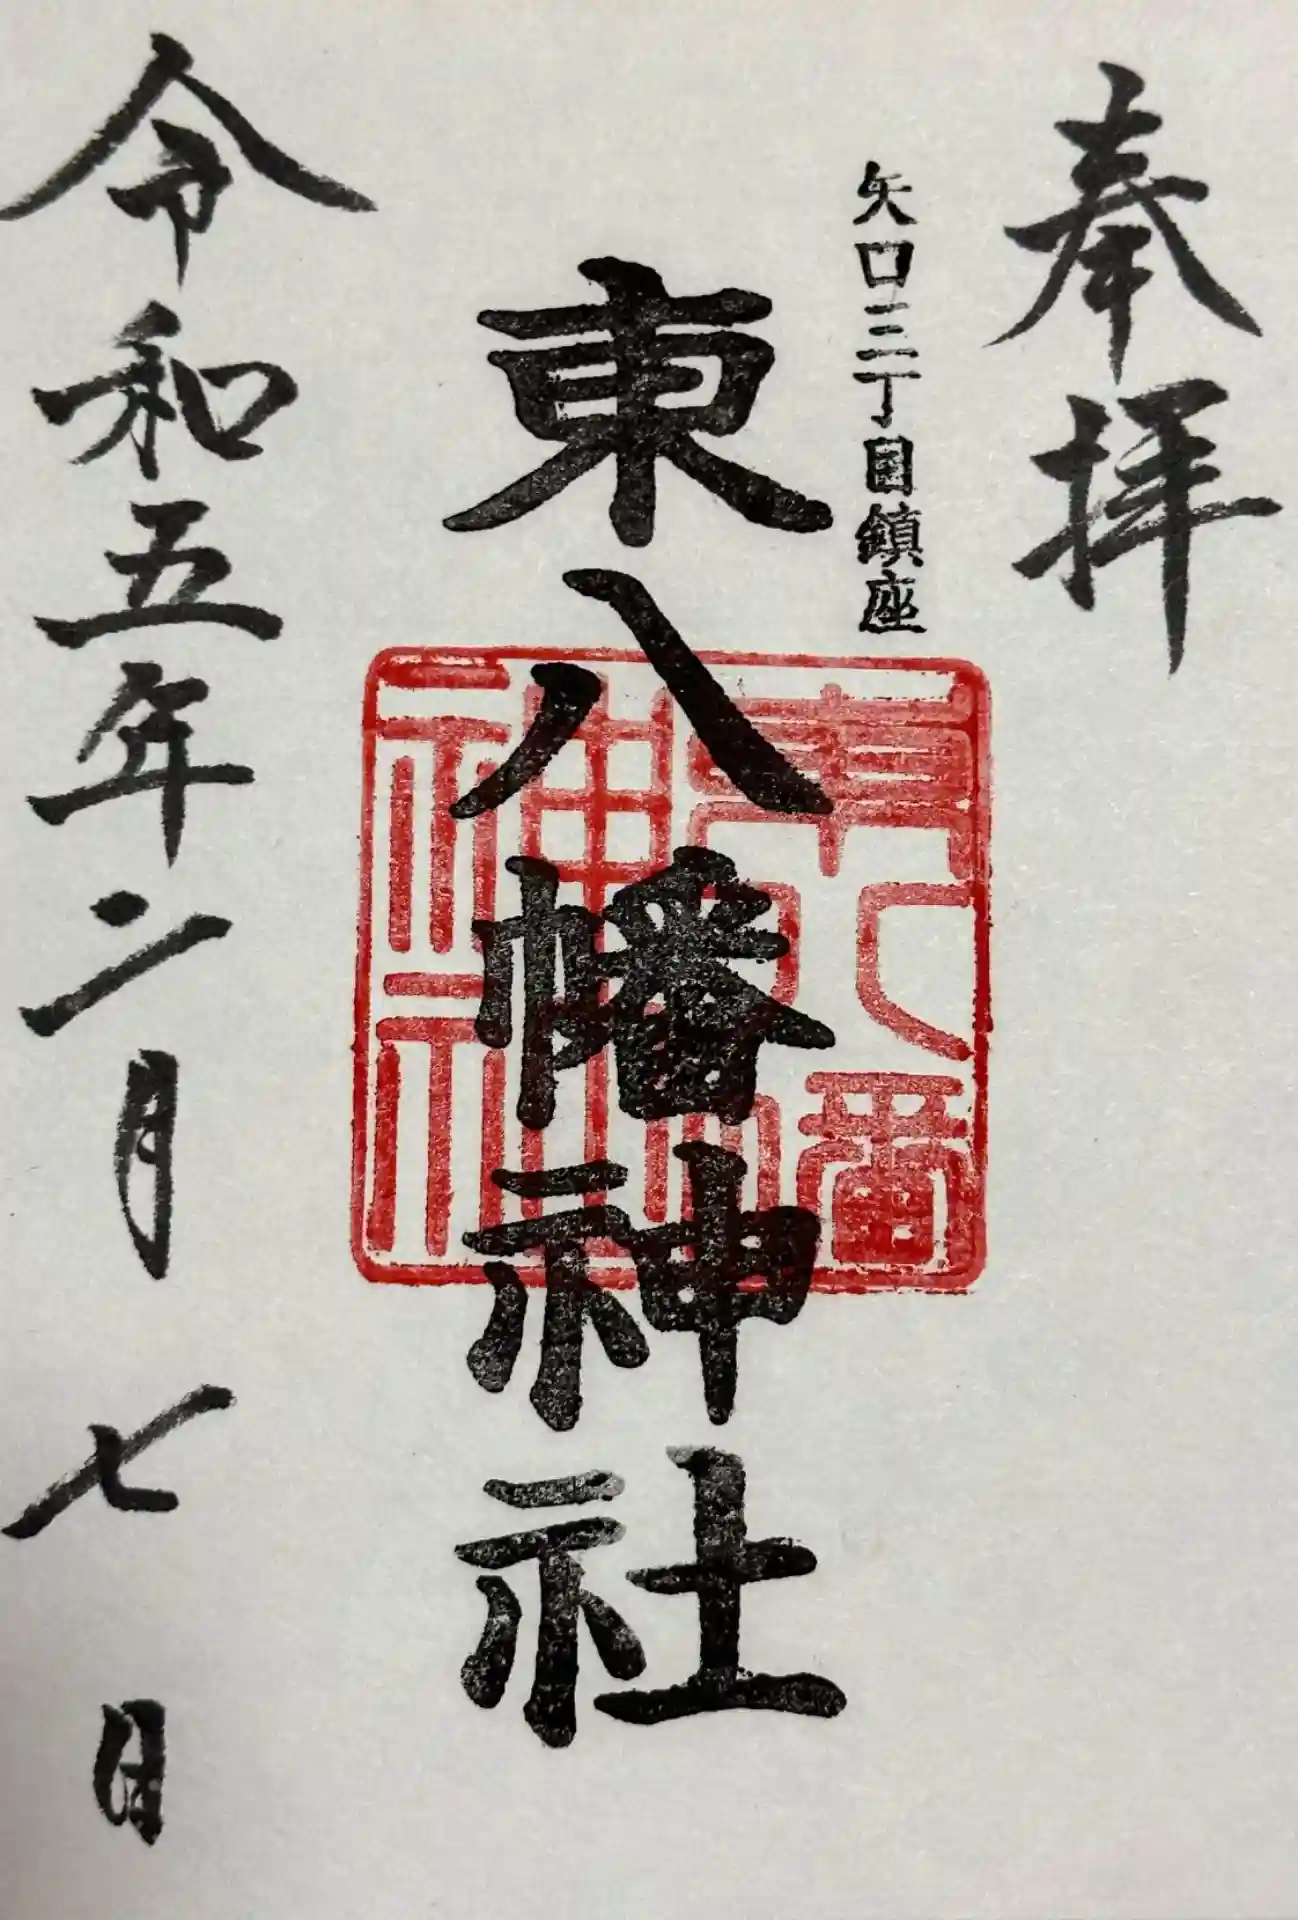 奉拝
矢口三丁目鎮座
東八幡神社
東八幡神社
令和五年二月七日